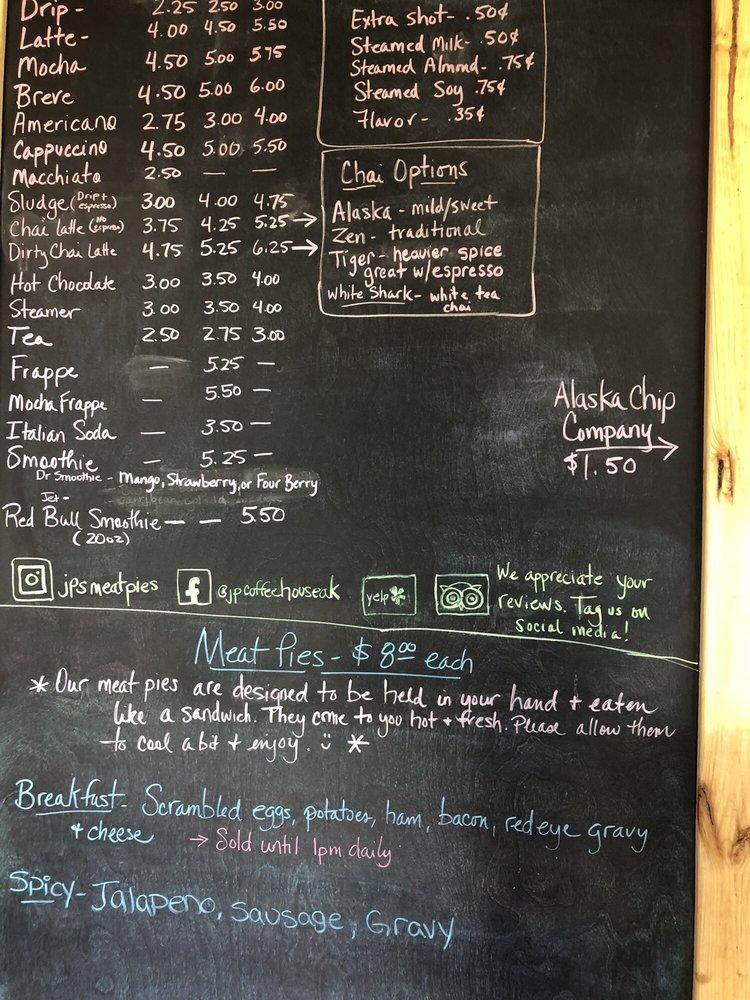 Drip - 2.25 2.50 3.00
Latte - 4.00 4.50 5.50
Mocha 4.50 5.00 5.75
Breve 4.50 5.00 6.00
Americano 2.75 3.00 4.00
Cappuccino 4.50 5.00 5.50
Macchiato 2.50 — —
Sludge (Drip + espresso) 3.00 4.00 4.75
Chai latte (No espresso) 3.75 4.25 5.25 →
Dirty Chai Latte 4.75 5.25 6.25 →
Hot Chocolate 3.00 3.50 4.00
Steamer 3.00 3.50 4.00
Tea 2.50 2.75 3.00
Frappe — 5.25 —
Mocha Frappe — 5.50 —
Italian Soda — 3.50 —
Smoothie — 5.25 —
Dr Smoothie - Mango, Strawberry, or Four Berry
Jet -
Red Bull Smoothie — — 5.50
(20oz)
Extra shot - .50¢
Steamed Milk - .50¢
Steamed Almond - .75¢
Steamed Soy .75¢
Flavor - .35¢
Chai Options
Alaska - mild/sweet
Zen - traditional
Tiger - heavier spice
great w/espresso
White Shark - white tea
chai
Alaska Chip
Company →
$1.50
jpsmeatpies
f @jpcoffeehouseak
yelp
We appreciate your
reviews. Tag us on
social media!
Meat Pies - $8.00 each
* Our meat pies are designed to be held in your hand + eaten
like a sandwich. They come to you hot + fresh. Please allow them
to cool a bit + enjoy. ü *
Breakfast - Scrambled eggs, potatoes, ham, bacon, redeye gravy
+ cheese → Sold until 1pm daily
Spicy - Jalapeno, sausage, Gravy